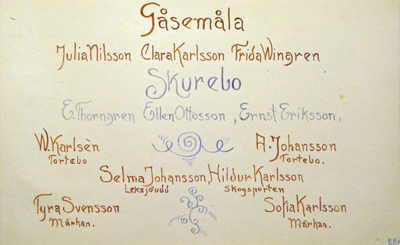 Gåsemåla
Julia Nilsson Clara Karlsson Frida Wingren
Skurebo
E. Thorngren Ellen Ottosson, Ernst Eriksson,
W. Karlsèn A. Johansson
Tortebo Tortebo.
Selma Johansson, Hildur Karlsson
Leksjöudd Skogsporten
Tyra Svensson Sofia Karlsson
Märkan. Märkan.